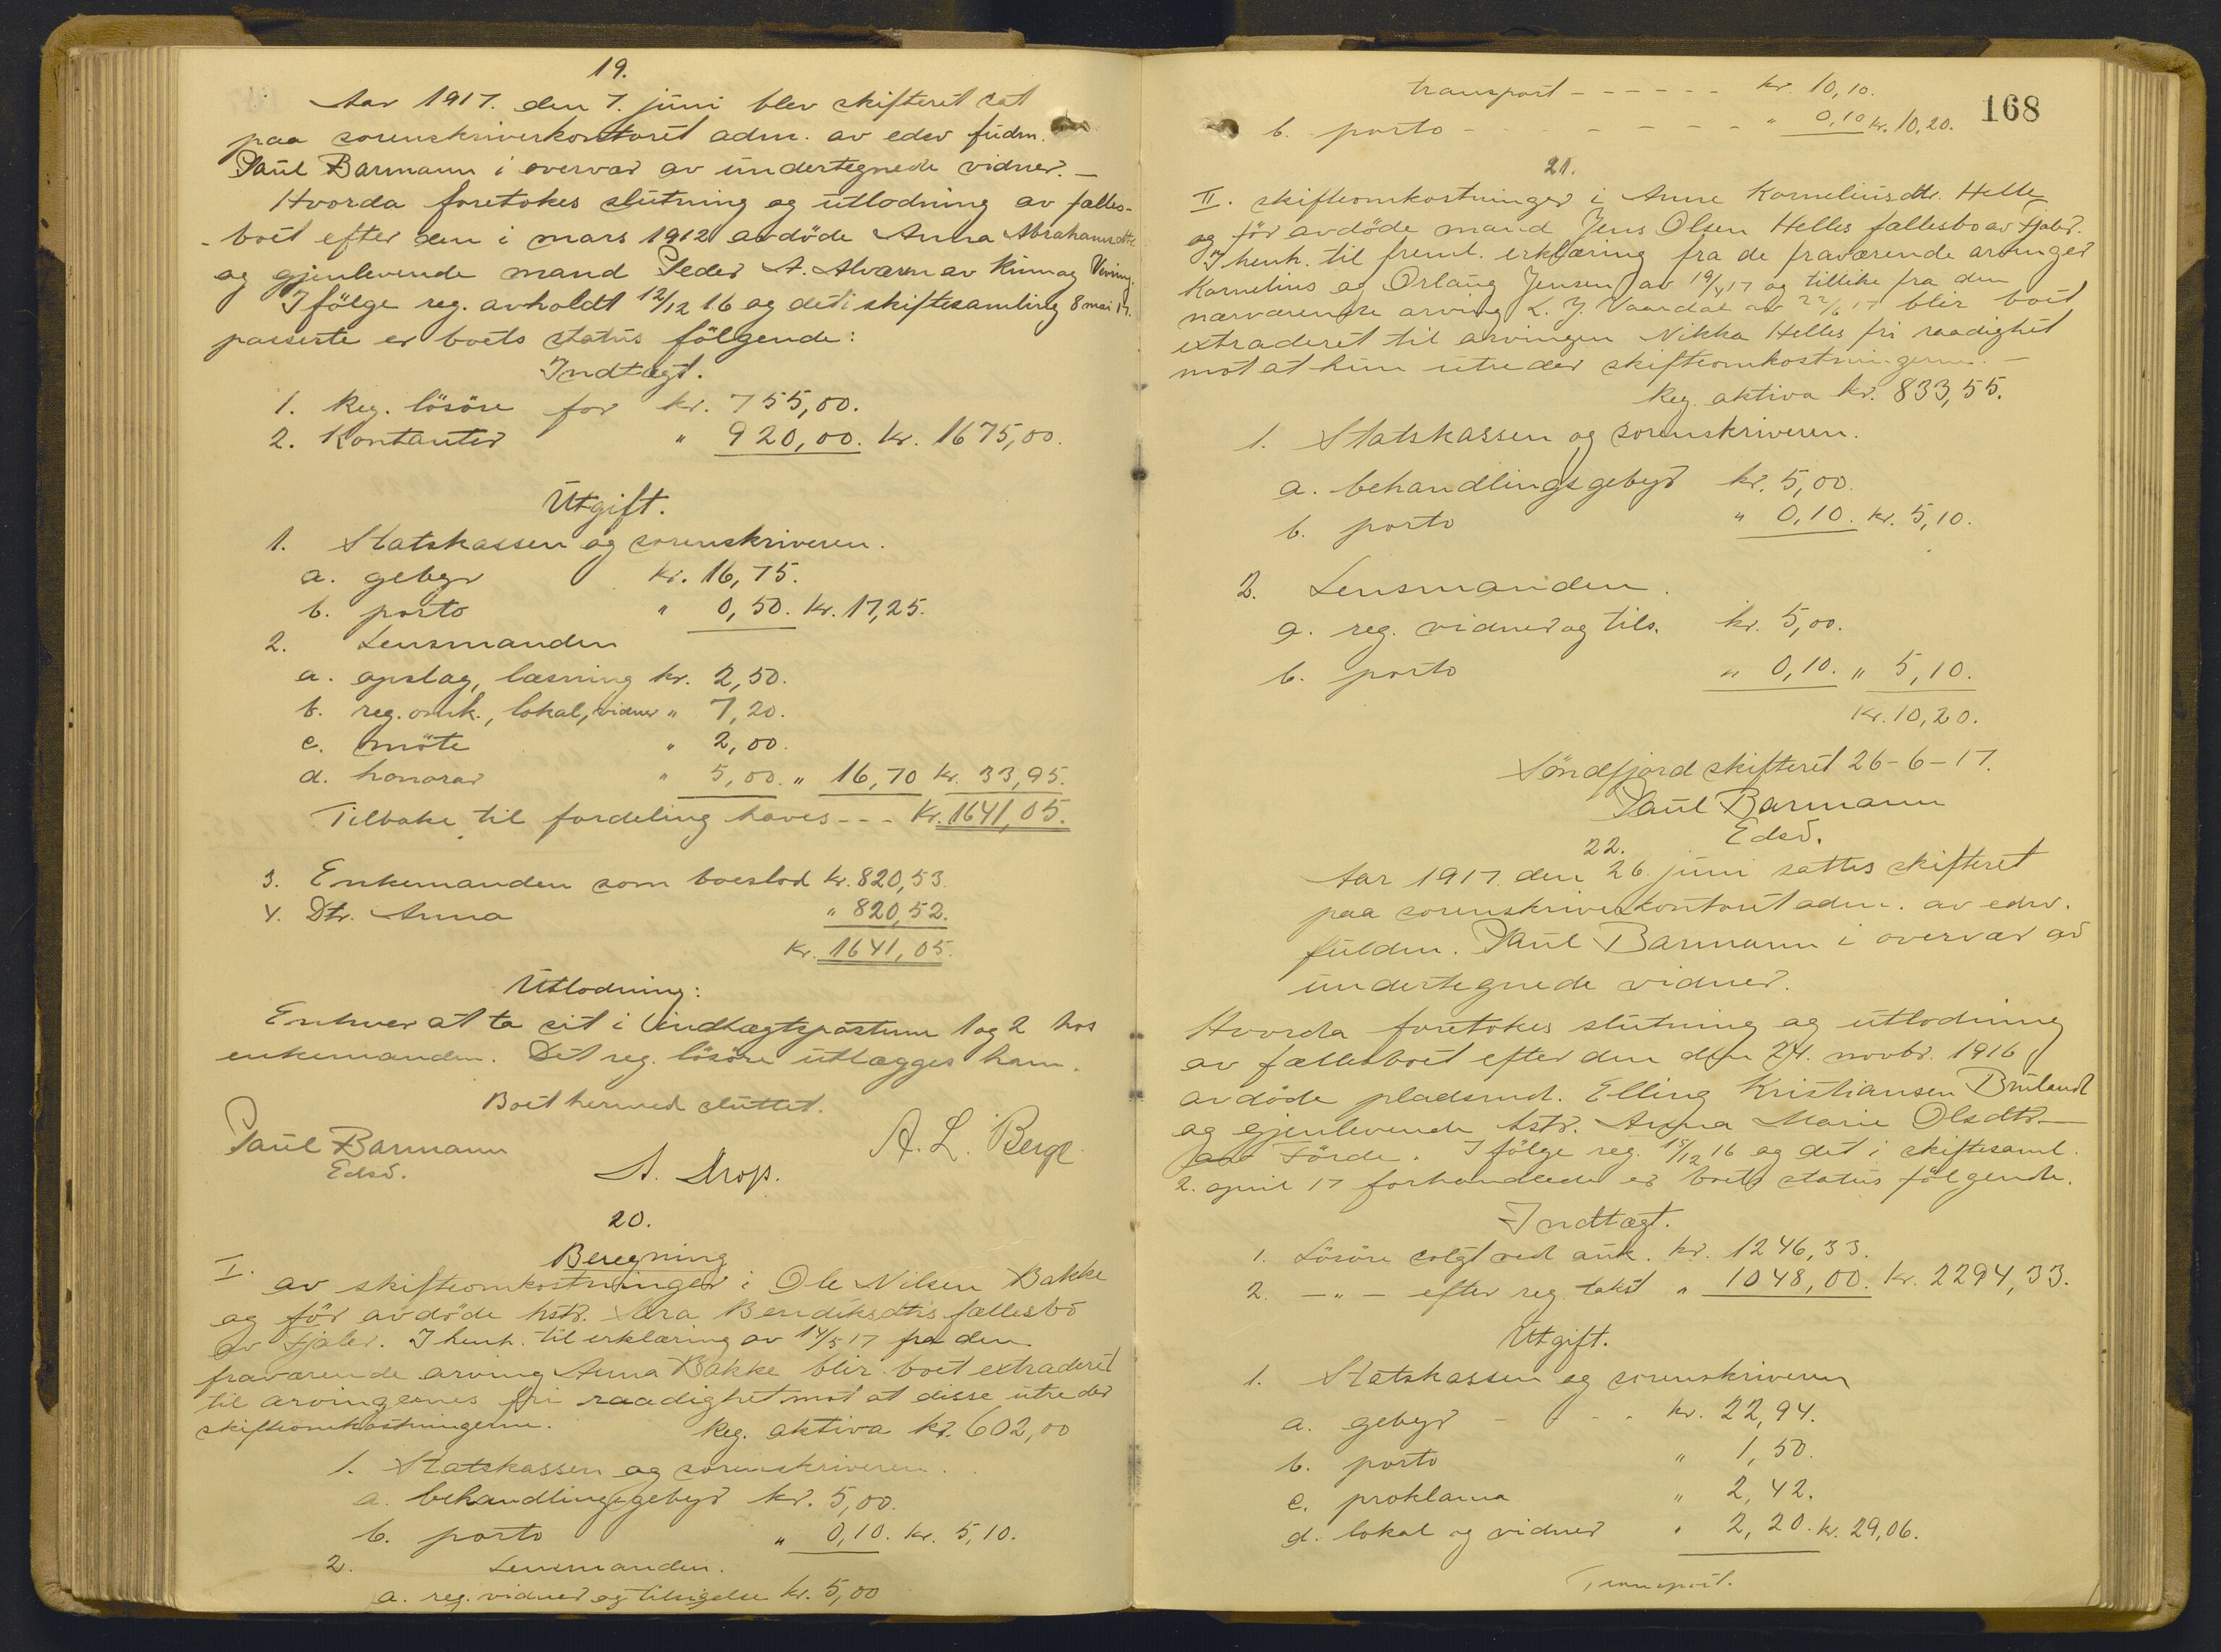 19.
Aar 1917. den 7. juni blev skifteret sat
paa sorenskriverkontoret adm. av edsv fuldm.
Paul Barmann i overvær av undertegnede vidner. —
Hvorda foretokes slutning og utlodning av fælles-
- boet efter den i mars 1912 avdöde Anna Abrahamsdtr.
og gjenlevende mand Peder A. Alværen av Kinn og
I fölge reg. avholdt 12/12 16 og det i skiftesamling 8 mai 17.
passerte er boets status fölgende:
Indtægt.
1. Reg. lösöre for kr. 755,00.
2. Kontanter " 920,00. kr. 1675,00.
Utgift.
1. Statskassen og sorenskriveren.
a. gebyr kr. 16,75.
b. porto " 0,50. kr. 17,25.
2. Lensmanden
a. opslag, læsning kr. 2,50.
b. reg. omk., lokal, vidner " 7,20.
c. möte " 2,00.
d. honorar " 5,00. " 16,70 kr. 33,95.
Tilbake til fordeling haves - - - kr. 1641,05.
3. Enkemanden som boeslod kr. 820,53.
4. Dtr. Anna " 820,52.
Kr. 1641,05.
Utlodning:
Enhver at ta sit i indtægtsposterne 1 og 2 hos
enkemanden. Det reg. lösöre utlægges ham.
Boet hermed sluttet.
Paul Barmann
Edsv.
A. L. Berge
20.
Beregning
I. av skifteomkostninger i Ole Nilsen Bakke
og för avdöde hstr. Bendiksdtrs fællesbo
av Fjaler. I henh. til erklæring av 14/5 17 fra den
fraværende arving Anna Bakke blir boet extraderet
til arvingernes fri raadighet mot at disse utreder
skifteomkostningerne. Reg. aktiva kr. 602,00
1. Statskassen og sorenskriveren.
a. behandlingsgebyr kr. 5,00.
b. porto " 0,10. kr. 5,10.
2. Lensmanden.
a. reg. vidner og tilsigelse kr. 5,00
168
transport - - - - - - kr. 10,10.
b. porto - - - - - - - " 0,10 kr. 10,20.
21.
II. skifteomkostninger i Anne Korneliusdtr. Helle
og för avdöde mand Jens Olsen Helles fællesbo av Fjaler.
I henh. til freml. erklæring fra de fraværende arvinger
Kornelius og Jensen av 19/4 17 og tillike fra den
nærværende arving L. J. av 22/6 17 blir boet
extraderet til arvingen Nikka Helles fri raadighet
mot at hun utreder skifteomkostningerne. —
Reg. aktiva kr. 833,55.
1. Statskassen og sorenskriveren.
a. behandlingsgebyr kr. 5,00.
b. porto " 0,10. kr. 5,10.
2. Lensmanden.
a. reg. vidner og tils. kr. 5,00.
b. porto " 0,10. " 5,10.
Kr. 10,20.
Söndfjord skifteret 26-6-17.
Paul Barmann
Edsv.
22.
Aar 1917 den 26. juni sattes skifteret
paa sorenskriverkontoret adm. av edsv.
fuldm. Paul Barmann i overvær av
undertegnede vidner.
Hvorda foretokes slutning og utlodning
av fællesboet efter den den 24. novbr. 1916
avdöde pladsmd. Elling Kristiansen Bruland
og gjenlevende hstr. Anna Marie Olsdtr. —
av Förde. I fölge reg. 15/12 16 og det i skiftesaml.
2. april 17 forhandlede er boets status fölgende.
Indtægt.
1. Lösöre solgt ved auk. kr. 1246,33.
2. - " - efter reg. takst " 1048,00. kr. 2294,33.
Utgift.
1. Statskassen og sorenskriveren
a. gebyr - - - kr. 22,94.
b. porto " 1,50.
c. proklama " 2,42.
d. lokal og vidner " 2,20. kr. 29,06.
Transport.